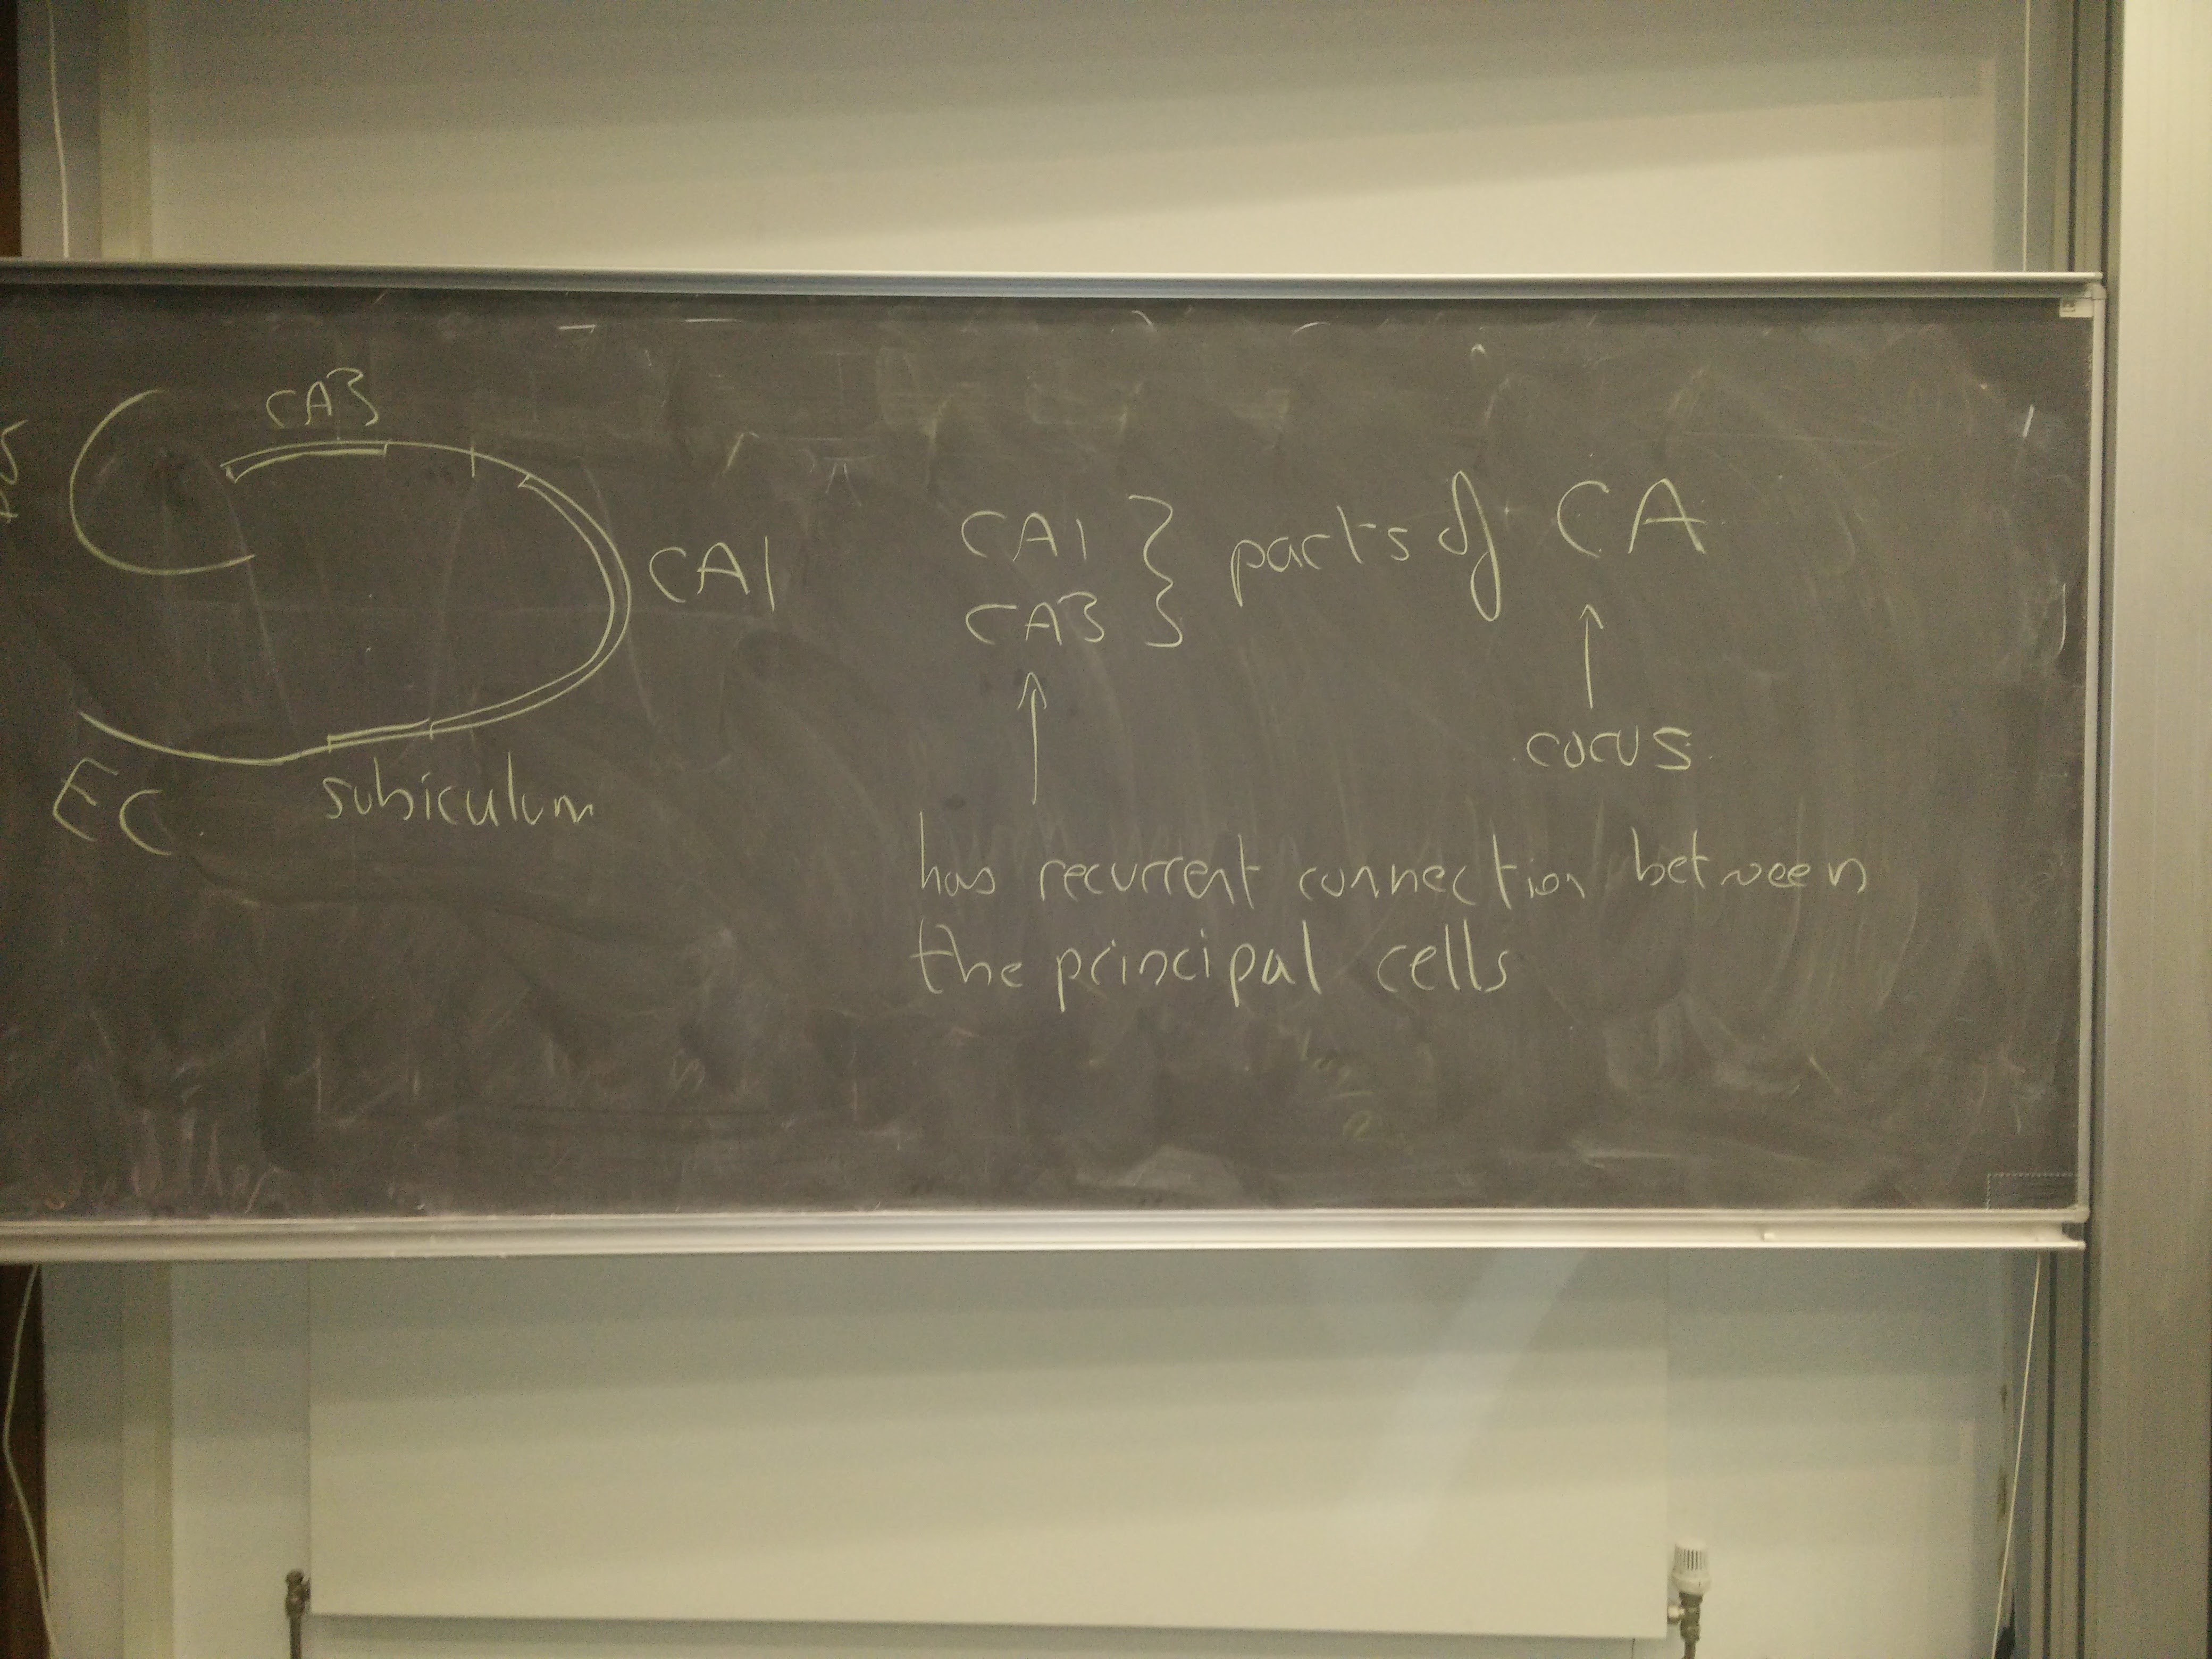 CA3
CA1
EC
subiculum
CA1
CA3
} parts of CA
↑
↑
cocus
has recurrent connection between
the principal cells